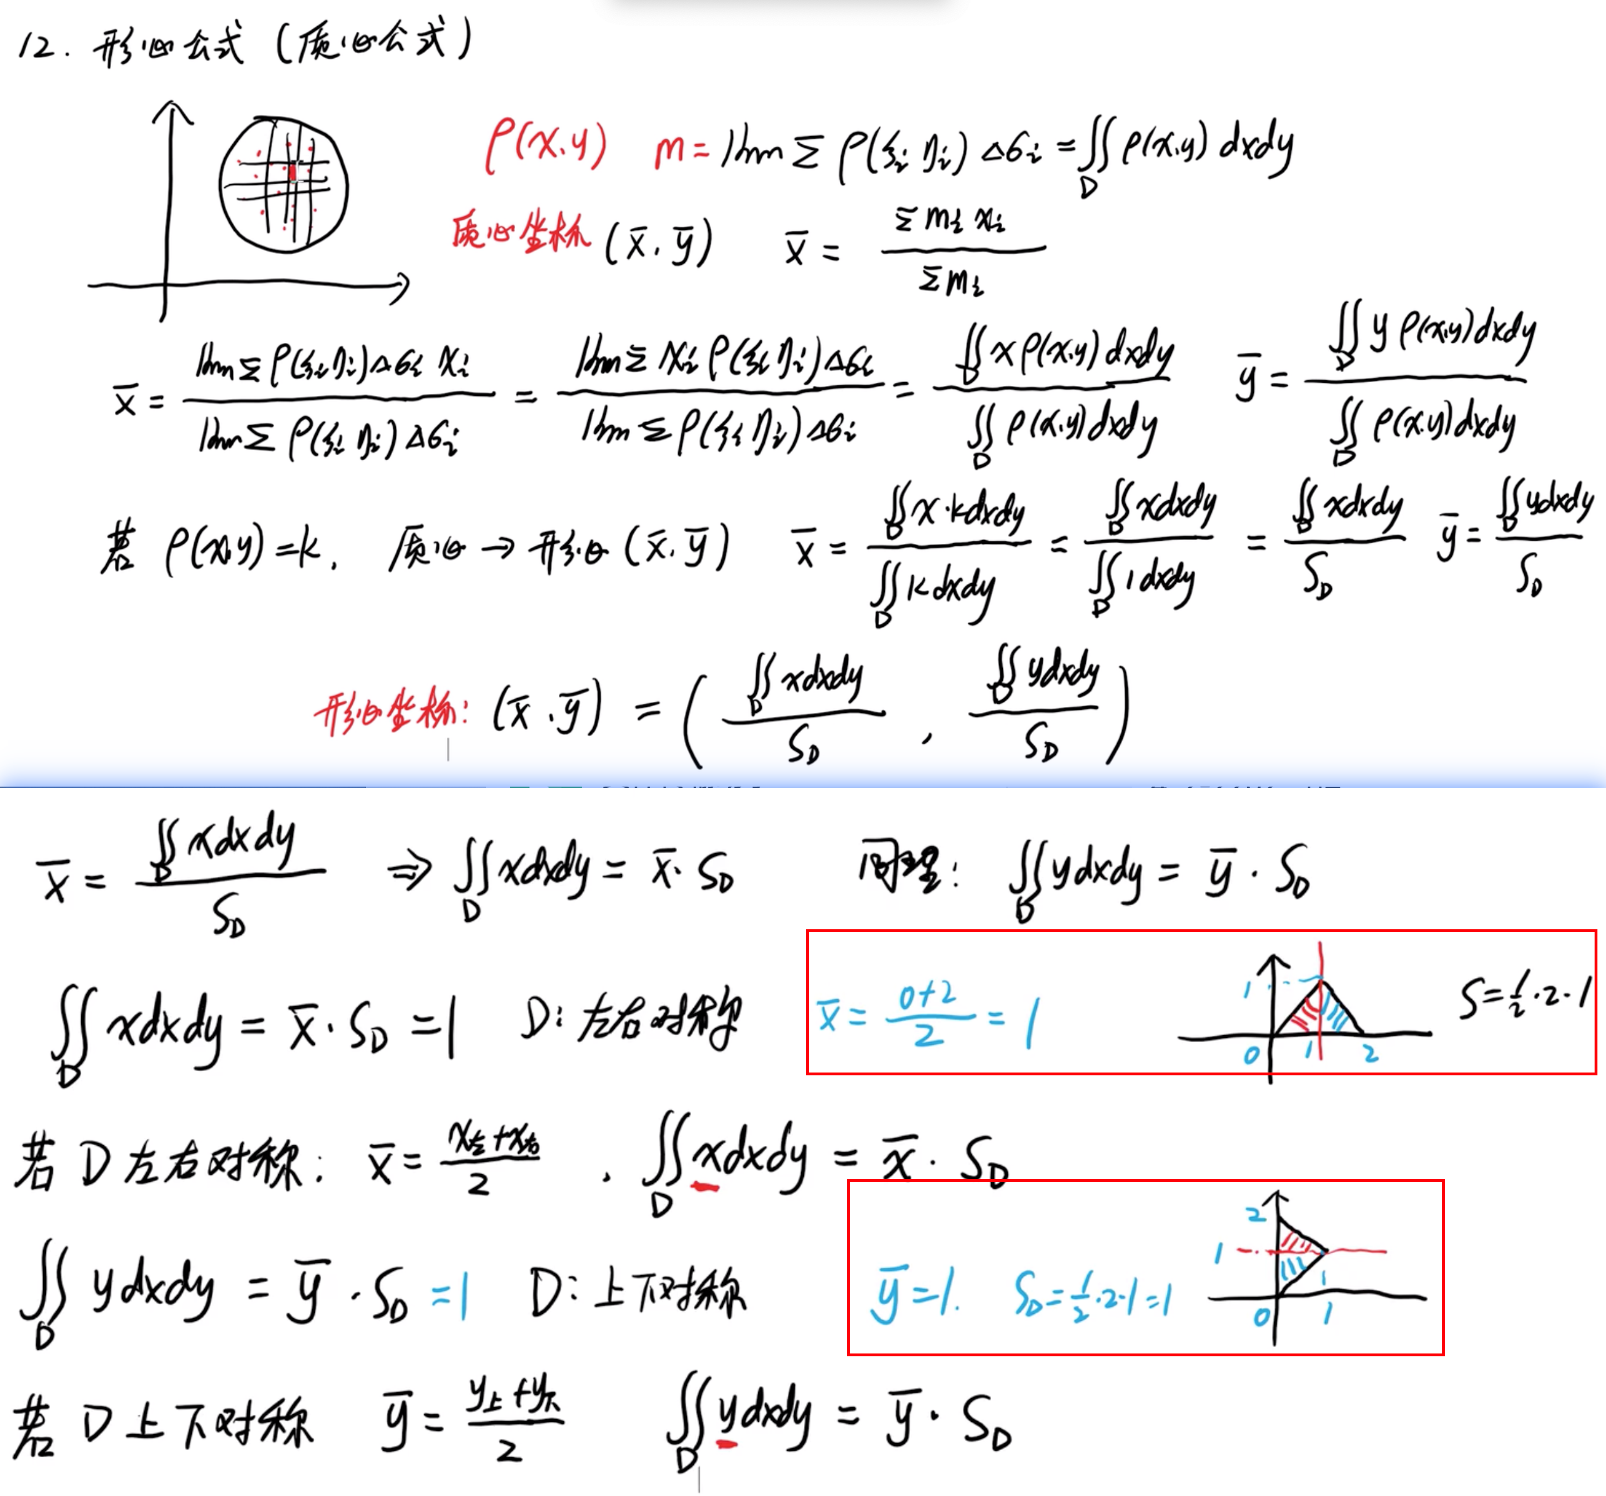 12. 形心公式 (质心公式)
ρ(x.y) m = lim Σ ρ(ξi ηi) Δσi = ∬D ρ(x.y) dxdy
质心坐标 (x̄. ȳ) x̄ = Σ mi xi / Σ mi
x̄ = lim Σ ρ(ξi ηi) Δσi xi / lim Σ ρ(ξi ηi) Δσi = lim Σ xi ρ(ξi ηi) Δσi / lim Σ ρ(ξi ηi) Δσi = ∬D x ρ(x.y) dxdy / ∬D ρ(x.y) dxdy ȳ = ∬D y ρ(x.y) dxdy / ∬D ρ(x.y) dxdy
若 ρ(x.y) = k. 质心 → 形心 (x̄. ȳ) x̄ = ∬D x·k dxdy / ∬D k dxdy = ∬D x dxdy / ∬D 1 dxdy = ∬D x dxdy / SD ȳ = ∬D y dxdy / SD
形心坐标: (x̄ . ȳ) = ( ∬D x dxdy / SD , ∬D y dxdy / SD )
x̄ = ∬D x dxdy / SD ⇒ ∬D x dxdy = x̄· SD 同理: ∬D y dxdy = ȳ · SD
∬D x dxdy = x̄· SD = 1 D: 左右对称 x̄ = 0+2 / 2 = 1 1 0 1 2 S = 1/2 · 2 · 1
若 D 左右对称: x̄ = x左+x右 / 2 . ∬D x dxdy = x̄ · SD
∬D y dxdy = ȳ · SD = 1 D: 上下对称 ȳ = 1. SD = 1/2 · 2 · 1 = 1 2 1 1 0 1
若 D 上下对称 ȳ = y上+y下 / 2 ∬D y dxdy = ȳ · SD